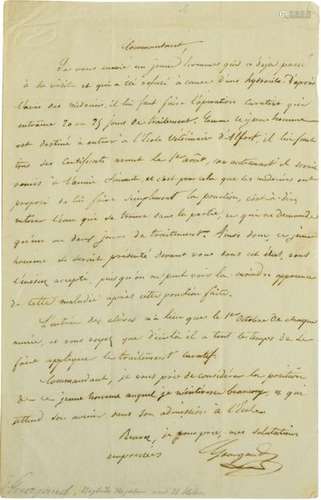 Commandant,
Je vous envoie un jeune homme qui a déjà passé
à la visite et qui a été refusé à cause d'une hydrocèle. D'après
l'avis des médecins, il lui faut faire l'opération curative qui
entraine 20 ou 25 jours de traitement. Comme ce jeune homme
est destiné à entrer à l'Ecole Vétérinaire d'Alfort, il lui faut
tous ses certificats avant le 1er août, car autrement il serait
remis à l'année suivante et c'est pour cela que les médecins ont
proposé de lui faire simplement la ponction, c'est à dire
retirer l'eau qui se trouve dans la partie, ce qui ne demande
qu'un ou deux jours de traitement. Ainsi donc ce jeune
homme se serait présenté devant vous dans cet état, vous
l'eussiez accepté, puisqu'on ne peut voir la moindre apparence
de cette maladie après cette ponction faite.
L'entrée des élèves n'a lieu que le 1er Octobre de chaque
année, et vous voyez que d'ici là il a tout le temps de se
faire appliquer le traitement curatif.
Commandant, je vous prie de considérer la position
de ce jeune homme auquel je m'intéresse beaucoup et qui
attend son avenir dans son admission à l'Ecole.
Recevez, je vous prie, mes salutations
empressées
Gourgaud